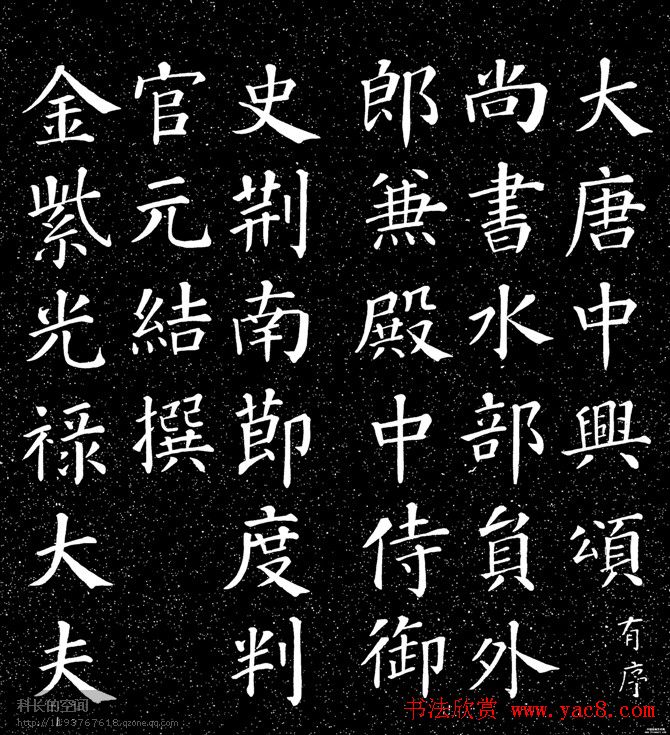 大唐中興頌
有序
尚書水部員外
郎兼殿中侍御
史荆南節度判
官元結撰
金紫光祿大夫
科长的空间
http://1193767618.qzone.qq.com
书法欣赏 www.yac8.com